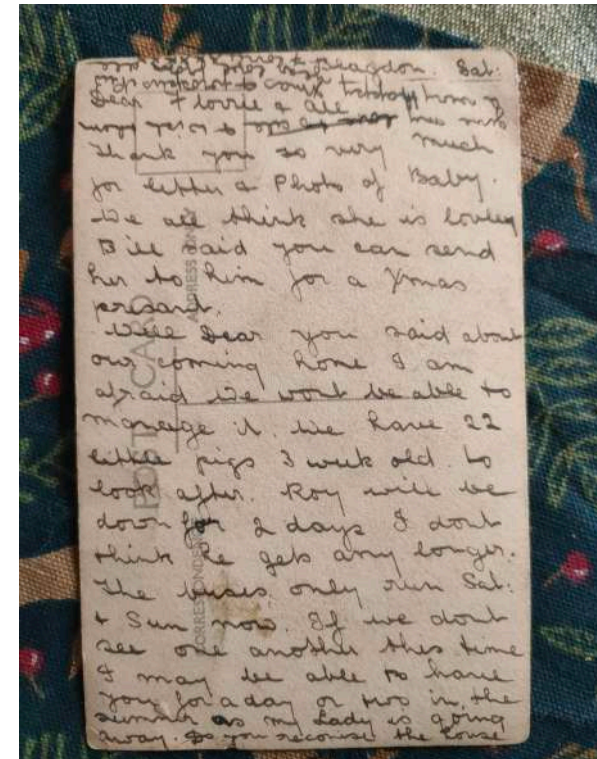 Blagdon. Sat:
Dear Florrie & All
Thank you so very much
for letter & Photo of Baby.
We all think she is lovley
Bill said you can send
her to him for a Xmas
presant.
Well Dear you said about
our coming home I am
afraid We wont be able to
manage it. We have 22
little pigs 3 week old. to
look after. Roy will be
down for 2 days I dont
think he gets any longer.
The buses only run Sat:
& Sun now. If we dont
see one another this time
I may be able to have
you for a day or two in the
summer as my Lady is going
away. Do you reconise the house
POST CARD
CORRESPONDENCE
ADDRESS ONLY